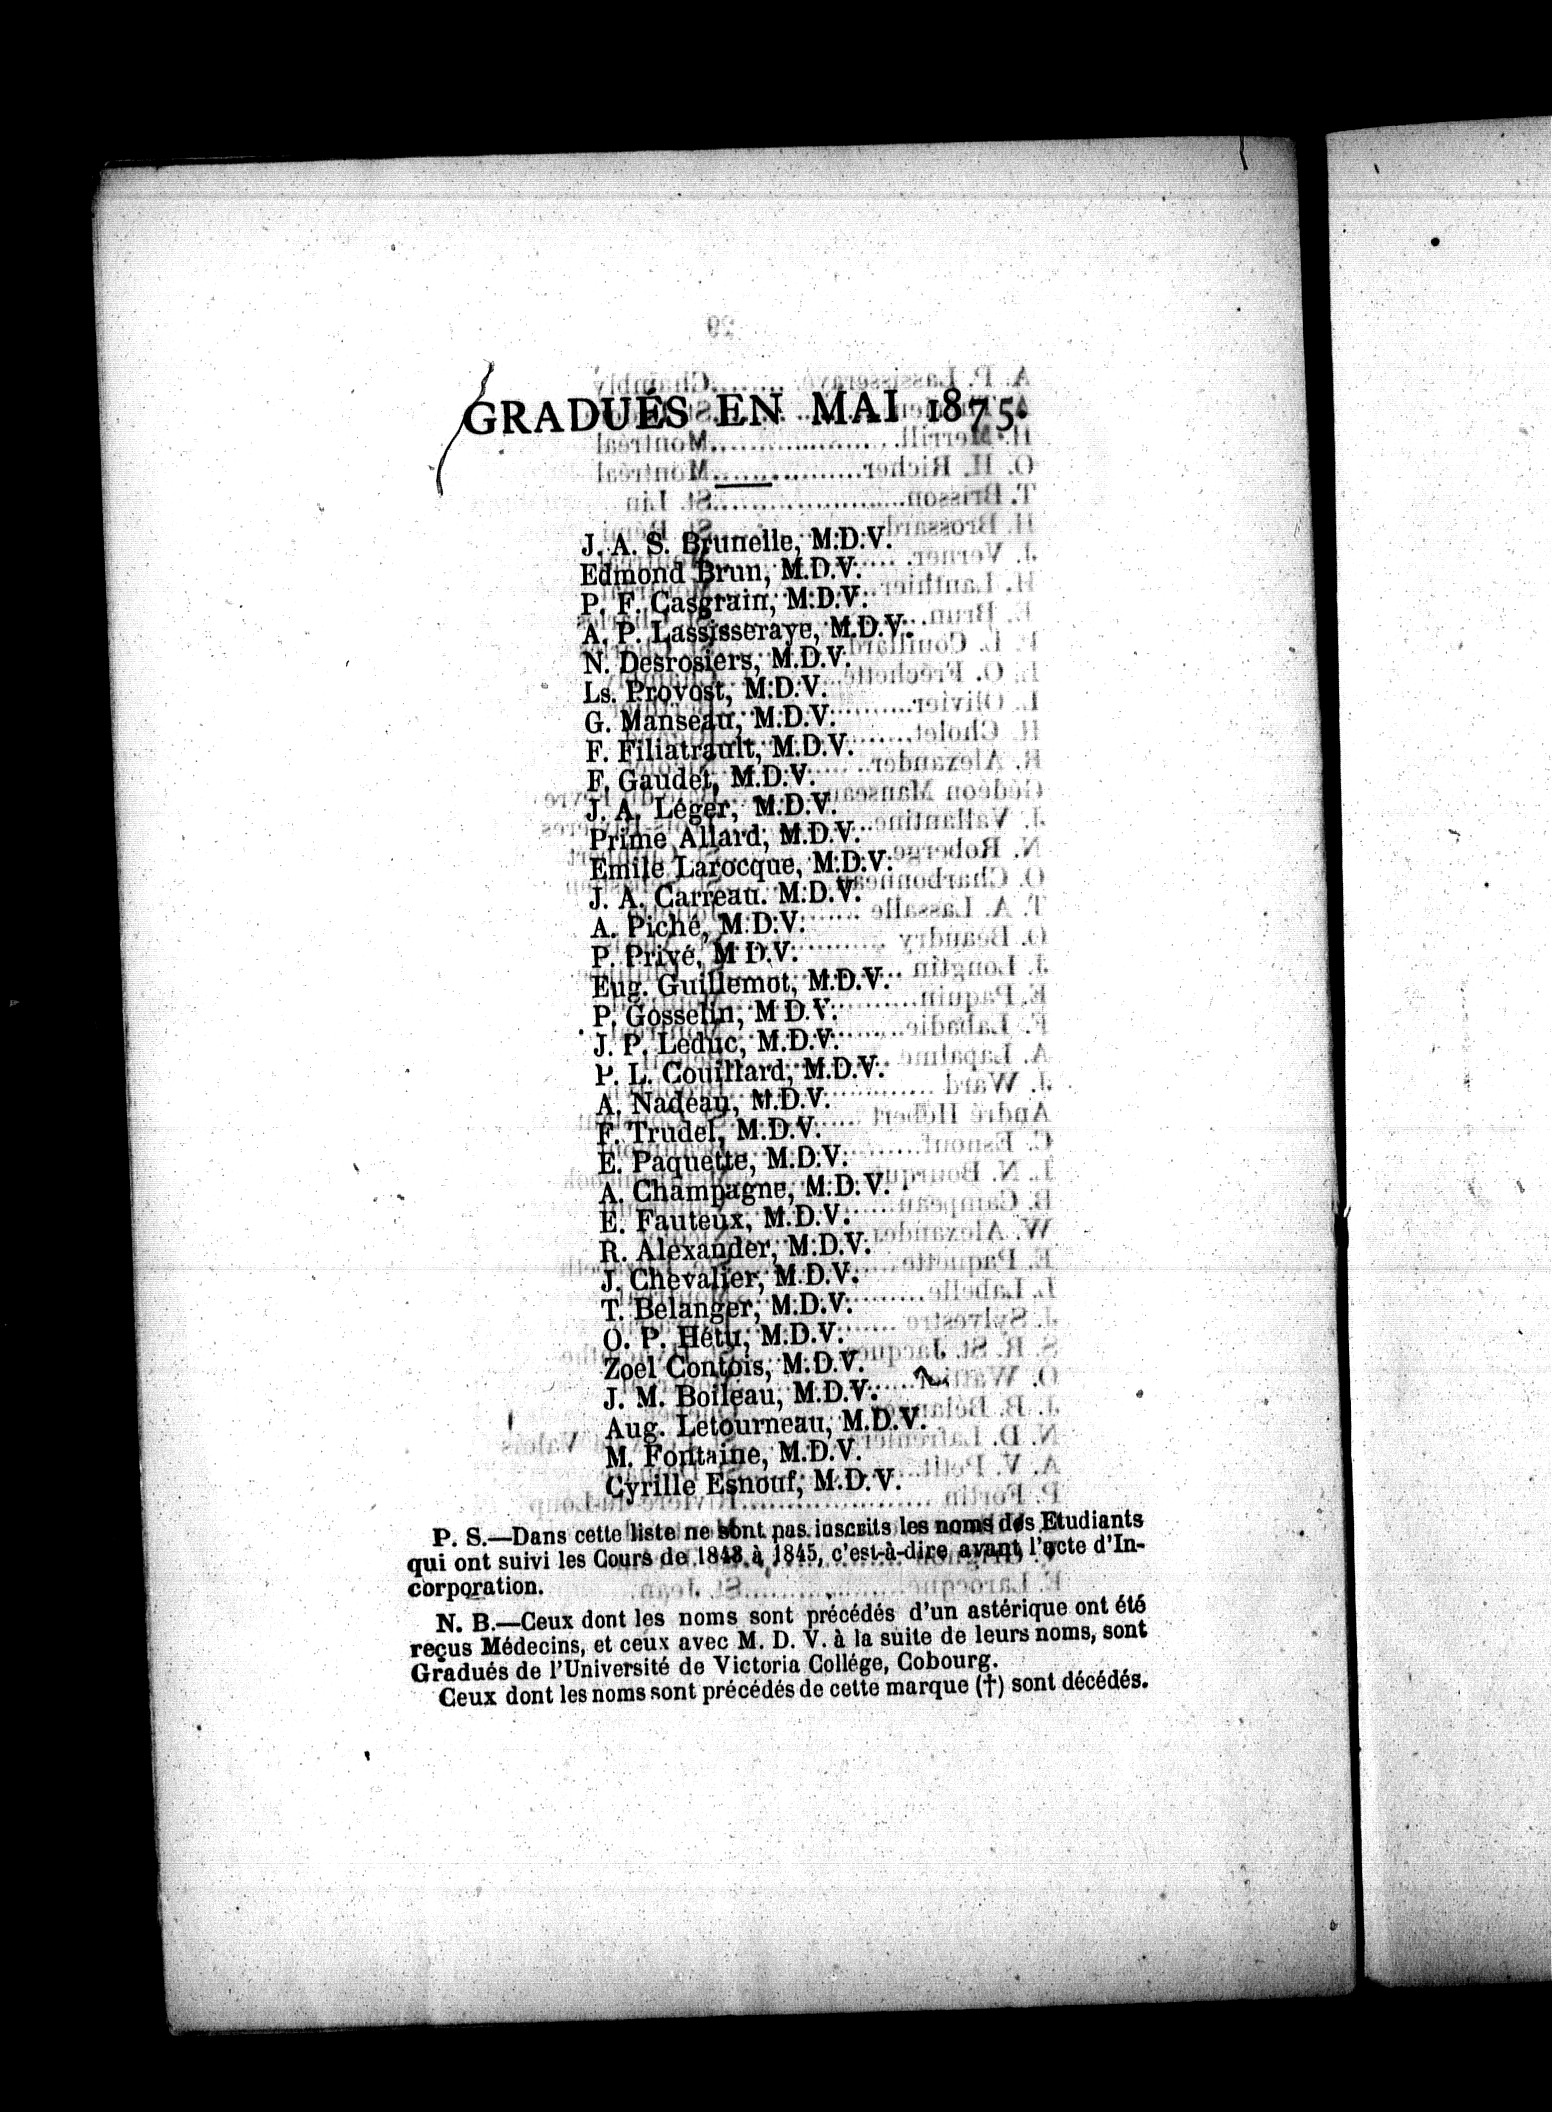 GRADUÉS EN MAI 1875.
J. A. S. Brunelle, M.D.V.
Edmond Brun, M.D.V.
P. F. Casgrain, M.D.V.
A. P. Lassisseraye, M.D.V.
N. Desrosiers, M.D.V.
Ls. Provost, M.D.V.
G. Manseau, M.D.V.
F. Filiatrault, M.D.V.
F. Gaudet, M.D.V.
J. A. Léger, M.D.V.
Prime Allard, M.D.V.
Emile Larocque, M.D.V.
J. A. Carreau. M.D.V.
A. Piché, M.D.V.
P. Privé, M D.V.
Eug. Guillemot, M.D.V.
P. Gosselin, M D.V.
J. P. Leduc, M.D.V.
P. L. Couillard, M.D.V.
A. Nadeau, M.D.V.
F. Trudel, M.D.V.
E. Paquette, M.D.V.
A. Champagne, M.D.V.
E. Fauteux, M.D.V.
R. Alexander, M.D.V.
J. Chevalier, M.D.V.
T. Belanger, M.D.V.
O. P. Hétu, M.D.V.
Zoel Contois, M.D.V.
J. M. Boileau, M.D.V.
Aug. Letourneau, M.D.V.
M. Fontaine, M.D.V.
Cyrille Esnouf, M.D.V.
P. S.—Dans cette liste ne sont pas inscrits les noms des Etudiants
qui ont suivi les Cours de 1843 à 1845, c'est-à-dire avant l'acte d'In-
corporation.
N. B.—Ceux dont les noms sont précédés d'un astérique ont été
reçus Médecins, et ceux avec M. D. V. à la suite de leurs noms, sont
Gradués de l'Université de Victoria Collége, Cobourg.
Ceux dont les noms sont précédés de cette marque (†) sont décédés.